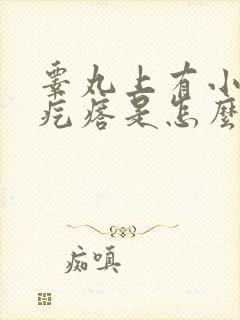 睾丸上有小
疙瘩是怎麼
痴嗔